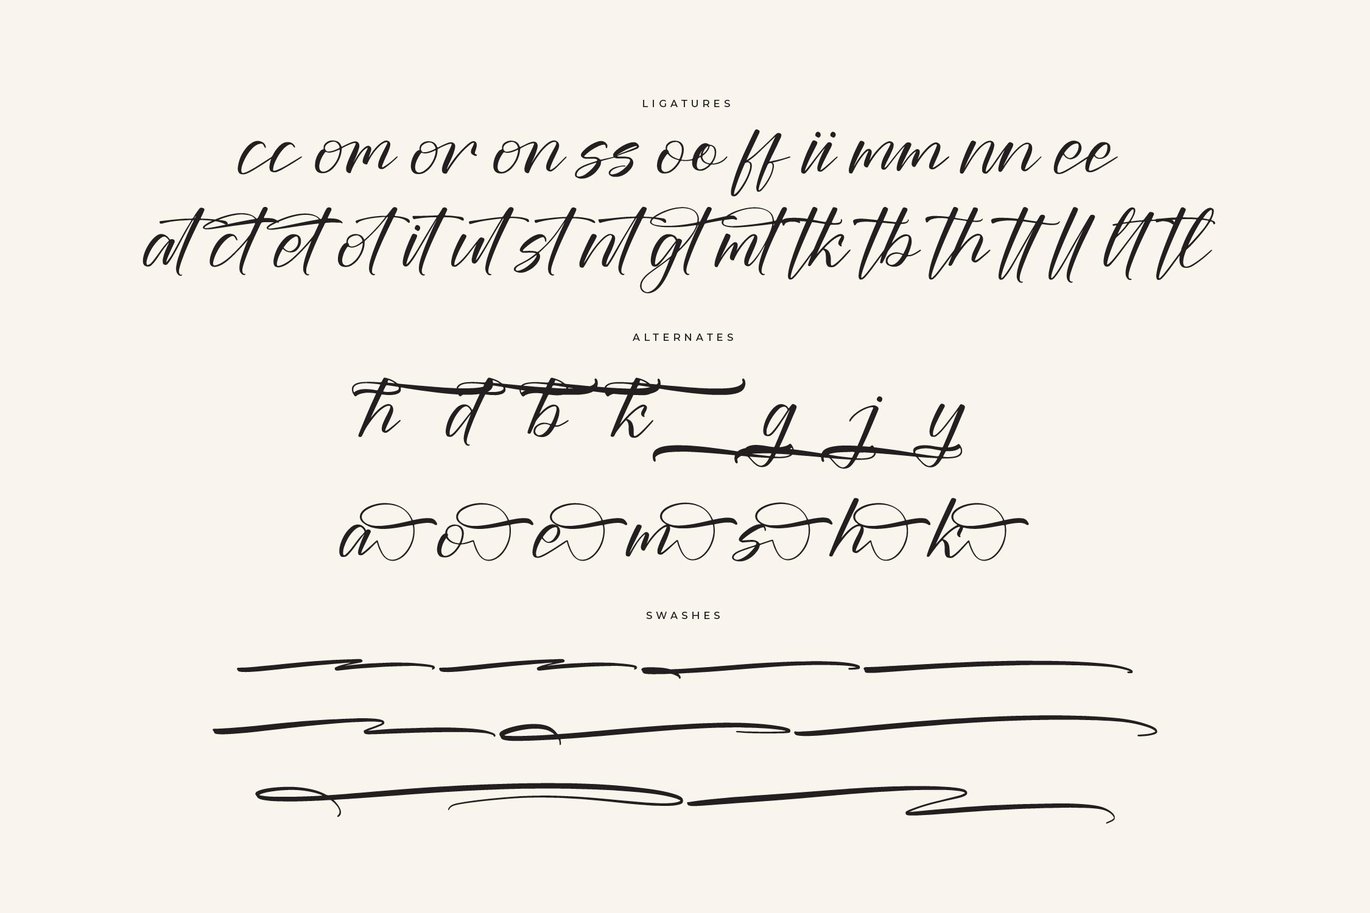 LIGATURES
cc om or on ss oo ff ii mm nn ee
at ct et ot it ut st nt gt mt tk tb th tt ll lt tl
ALTERNATES
h d b k g j y
a o e m s h k
SWASHES